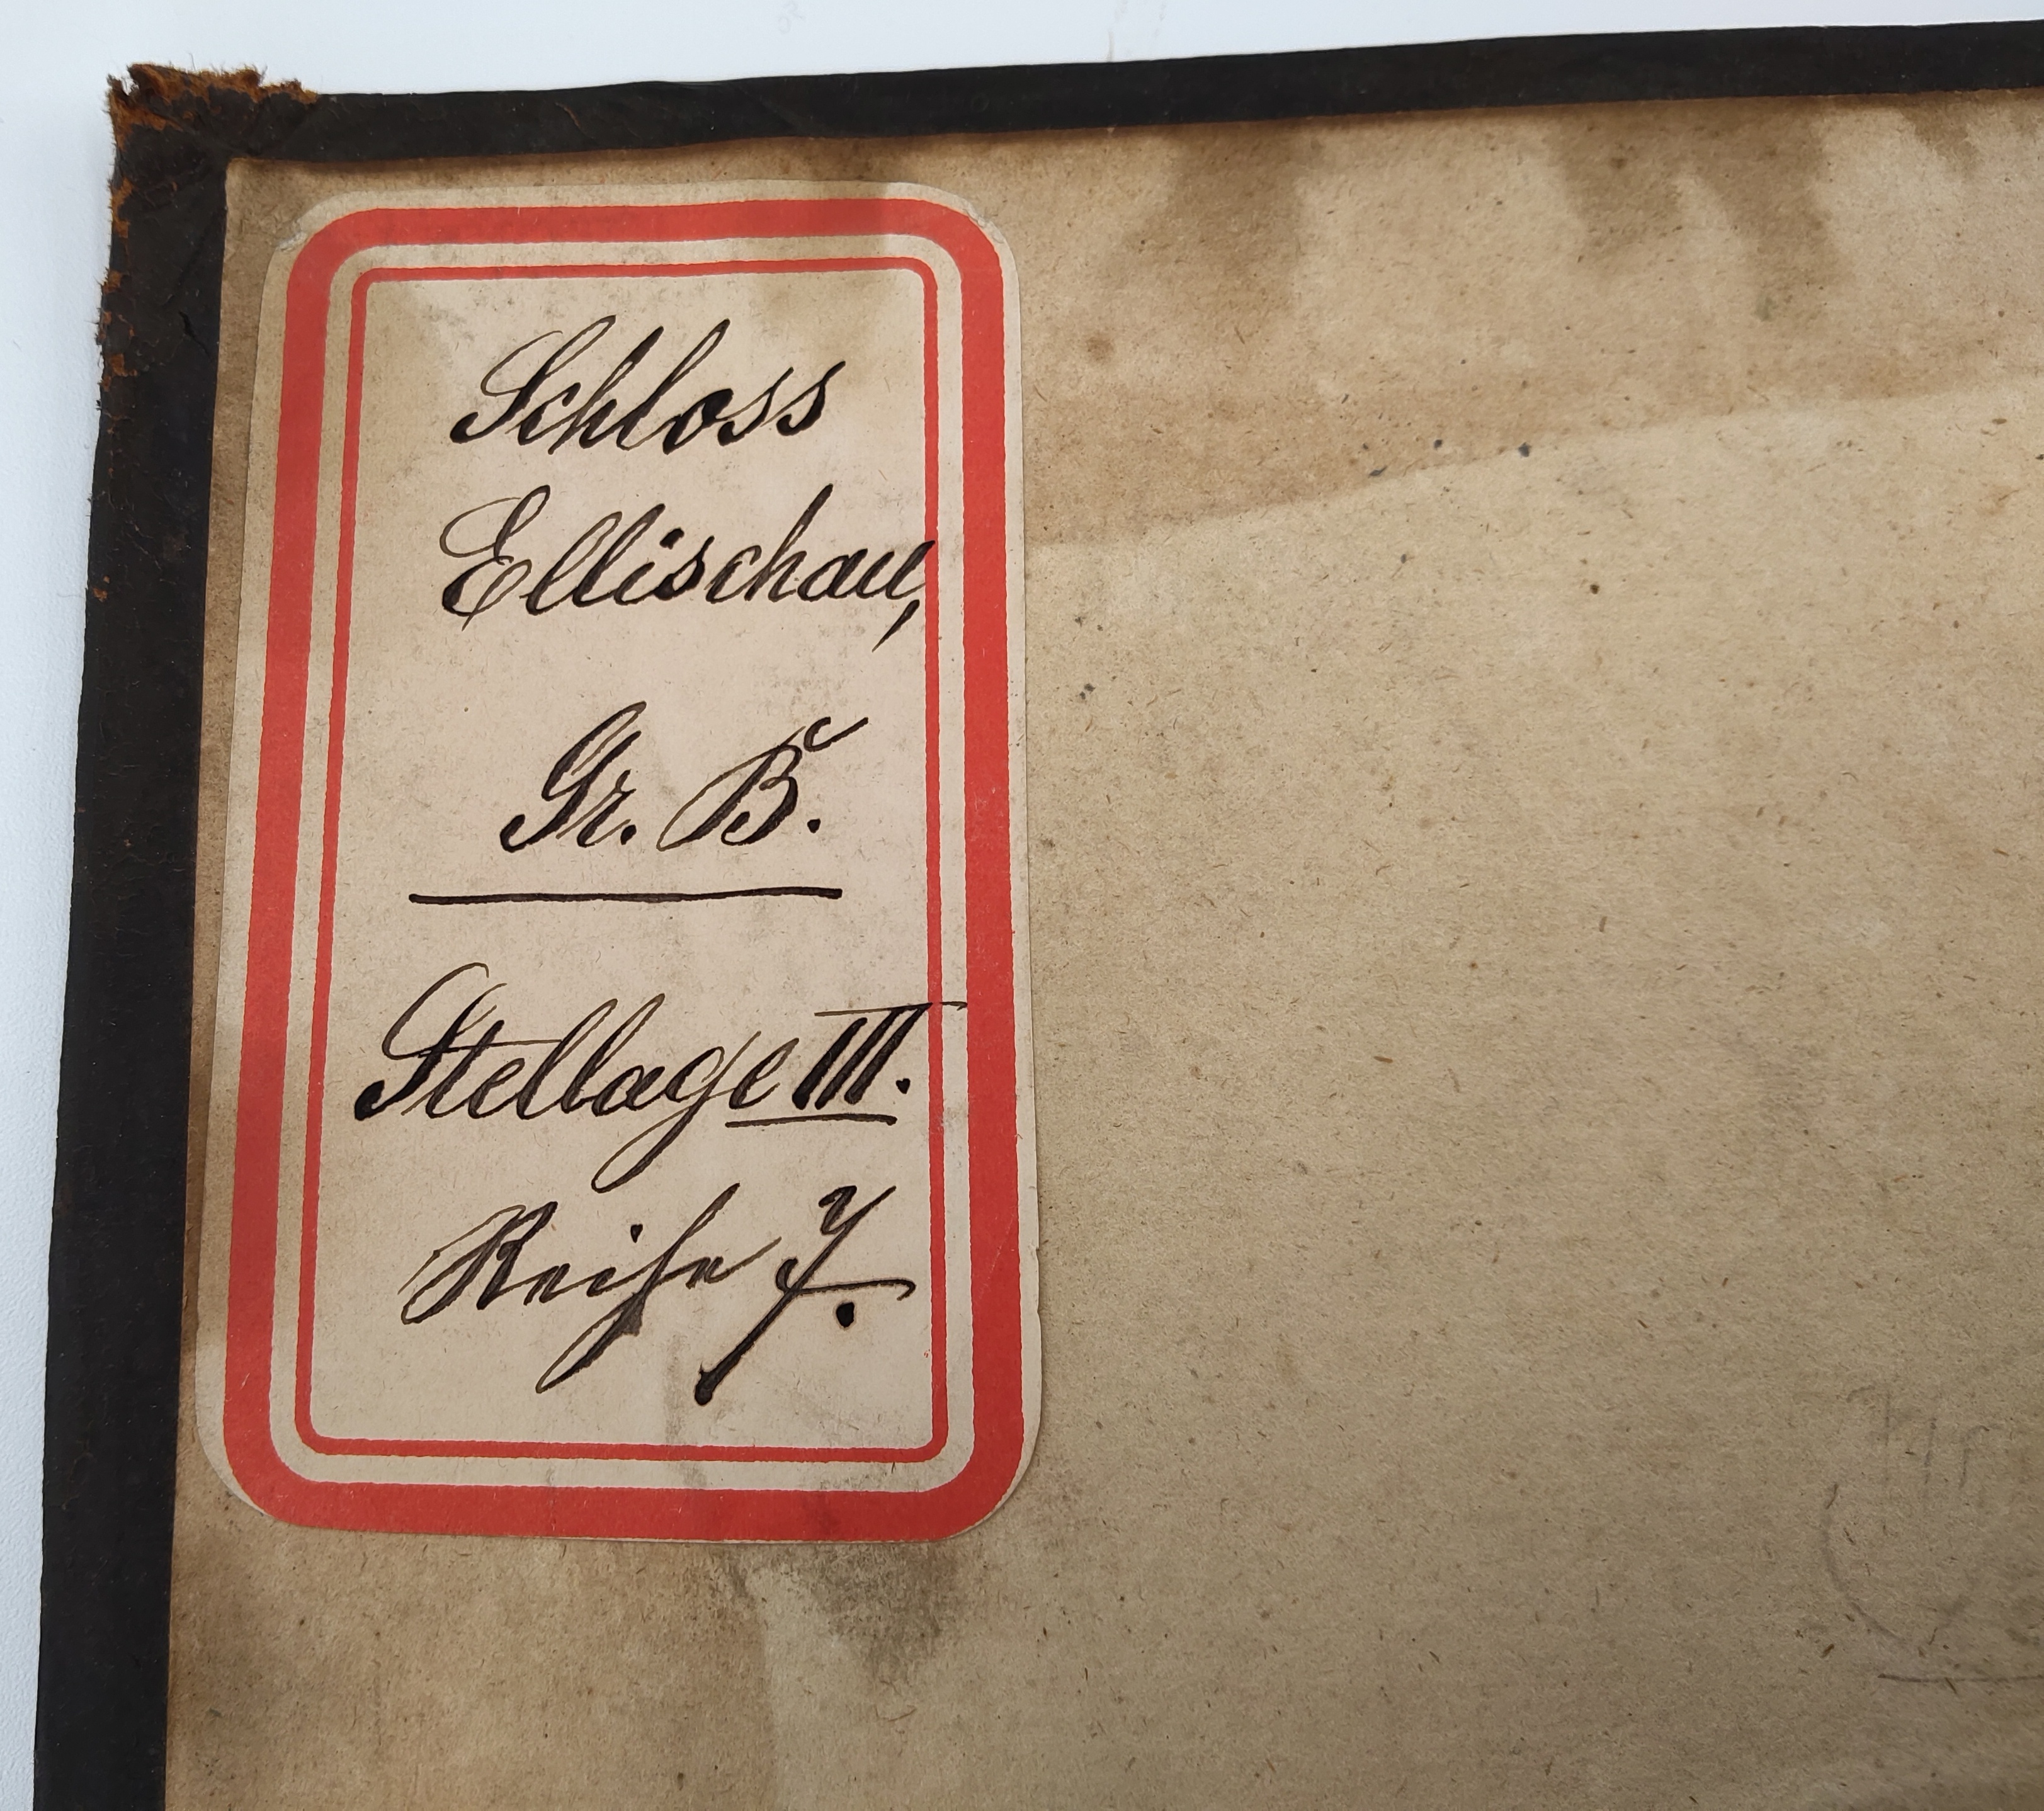 Schloss
Ellischau,
Gr. B.
Stellage III.
Reihe 7.